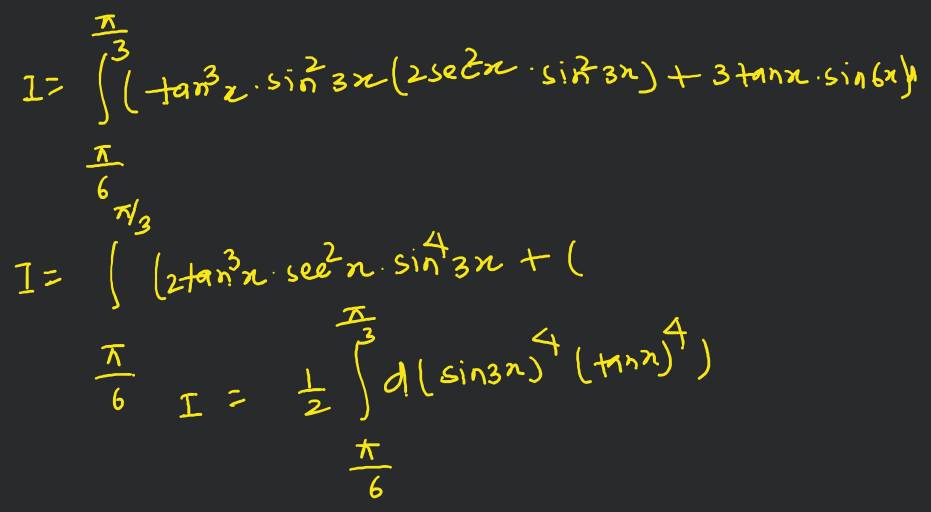 I = ∫_{π/6}^{π/3} ( tan³x · sin² 3x (2sec²x · sin² 3x) + 3 tanx · sin 6x)
I = ∫_{π/6}^{π/3} (2tan³x · sec²x · sin⁴3x + (
I = 1/2 ∫_{π/6}^{π/3} d( sin3x)⁴ (tanx)⁴ )